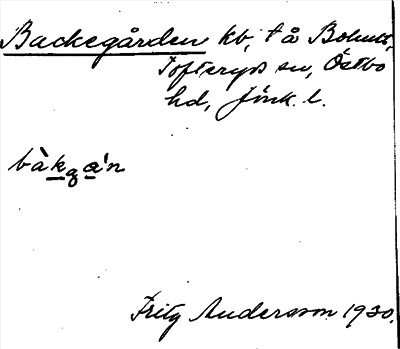 Backegården kb, t å Bohult,
Tofteryds sn, Östbo
hd, Jönk. l.
bàkgá'n
Fritz Andersson 1930.